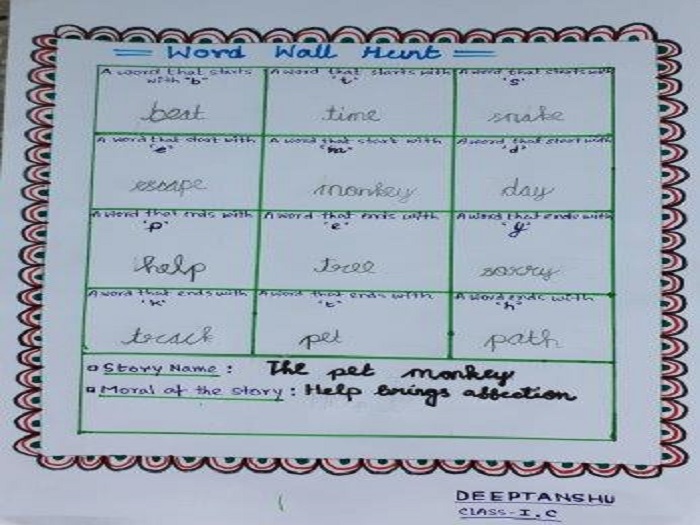 Word Wall Hunt
A word that starts with "b"
A word that starts with "t"
A word that starts with "s"
beat
time
snake
A word that start with "e"
A word that start with "m"
A word that start with "d"
escape
monkey
day
A word that ends with "p"
A word that ends with "e"
A word that ends with "y"
help
tree
sorry
A word that ends with "k"
A word that ends with "t"
A word ends with "h"
track
pet
path
Story Name : The pet monkey
Moral of the story : Help brings affection
DEEPTANSHU
CLASS-I.C